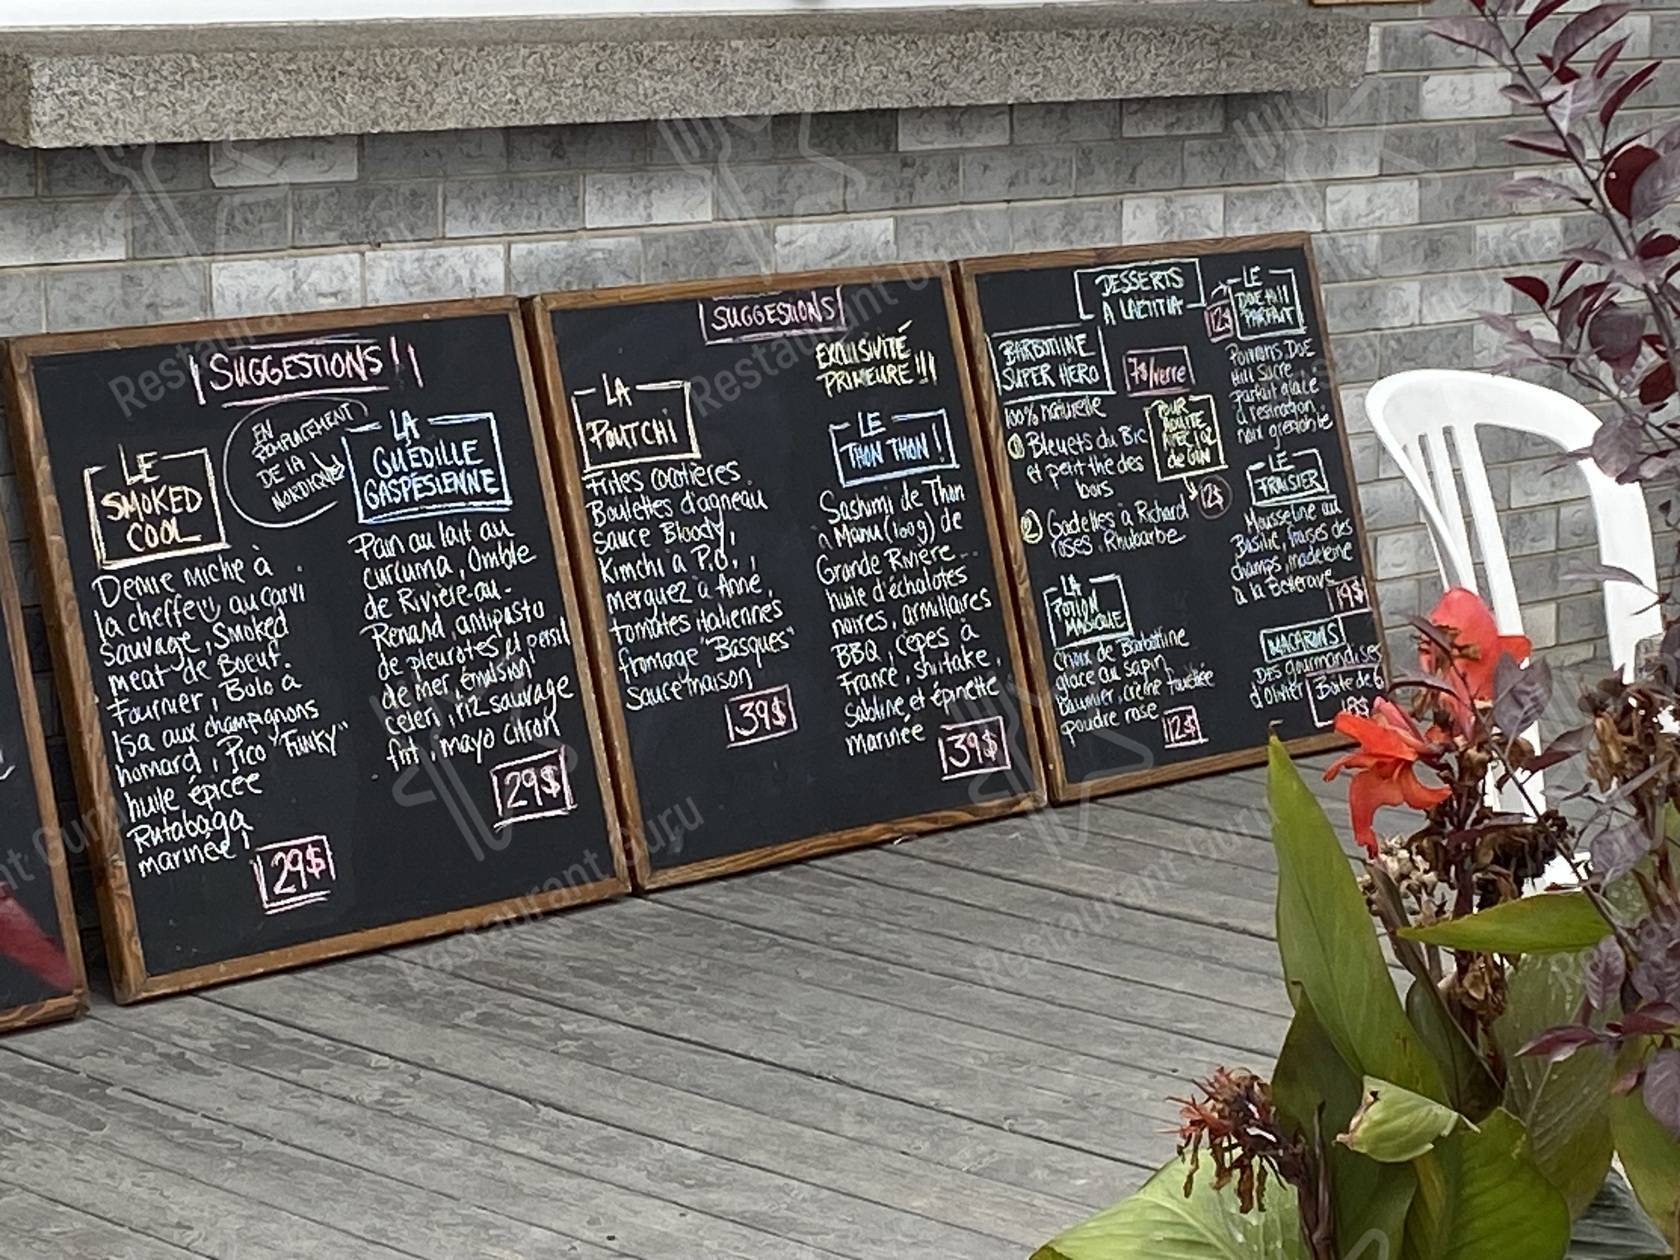 SUGGESTIONS !
LE
SMOKED
COOL
Demie miche à
la cheffe au carvi
sauvage, Smoked
meat de Boeuf.
Fournier, Bolo à
Isa aux champignons
homard, Pico "Funky"
huile épicée
Rutabaga
marinée !
29$
EN
REMPLACEMENT
DE LA
NORDIQUE
LA
GUÉDILLE
GASPÉSIENNE
Pain au lait au
curcuma, Omble
de Rivière-au-
Renard, antipasto
de pleurotes et persil
de mer, émulsion
céleri, riz sauvage
frit, mayo citron
29$
SUGGESTIONS
LA
POUTCHI
Frites cocotières
Boulettes d'agneau
sauce Bloody,
Kimchi à P.O.,
merguez à Anne,
tomates italiennes
fromage "Basques"
sauce maison
39$
EXCLUSIVITÉ
PRIMEURE !!!
LE
THON THON !
Sashimi de Thon
à Manu (100g) de
Grande Rivière
huile d'échalotes
noires, armillaires
BBQ, cèpes à
France, shiitake,
Sabline et épinette
marinée
39$
DESSERTS
À LAETITIA
BARBOTINE
SUPER HERO
7$/verre
100% naturelle
1 Bleuets du Bic
et petit thé des
bois
2 Gadelles à Richard
roses, Rhubarbe
POUR
ADULTE
AVEC 1 oz
de GIN
12$
LA
POTION
MAGIQUE
Choix de Barbotine
glace au sapin
Baumier, crème fouettée
poudre rose
12$
LE
DOE Hill
PARFAIT
12$
Poivrons Doe
Hill Sucre,
parfait glacé
LE
FRAISIER
Mousseline au
Basilic, fraises des
champs, madeleine
à la Betterave
19$
MACARONS
DES gourmandises
d'olivier
Boîte de 6
18$
Restaurant Guru
Restaurant Guru
Restaurant Guru
Restaurant Guru